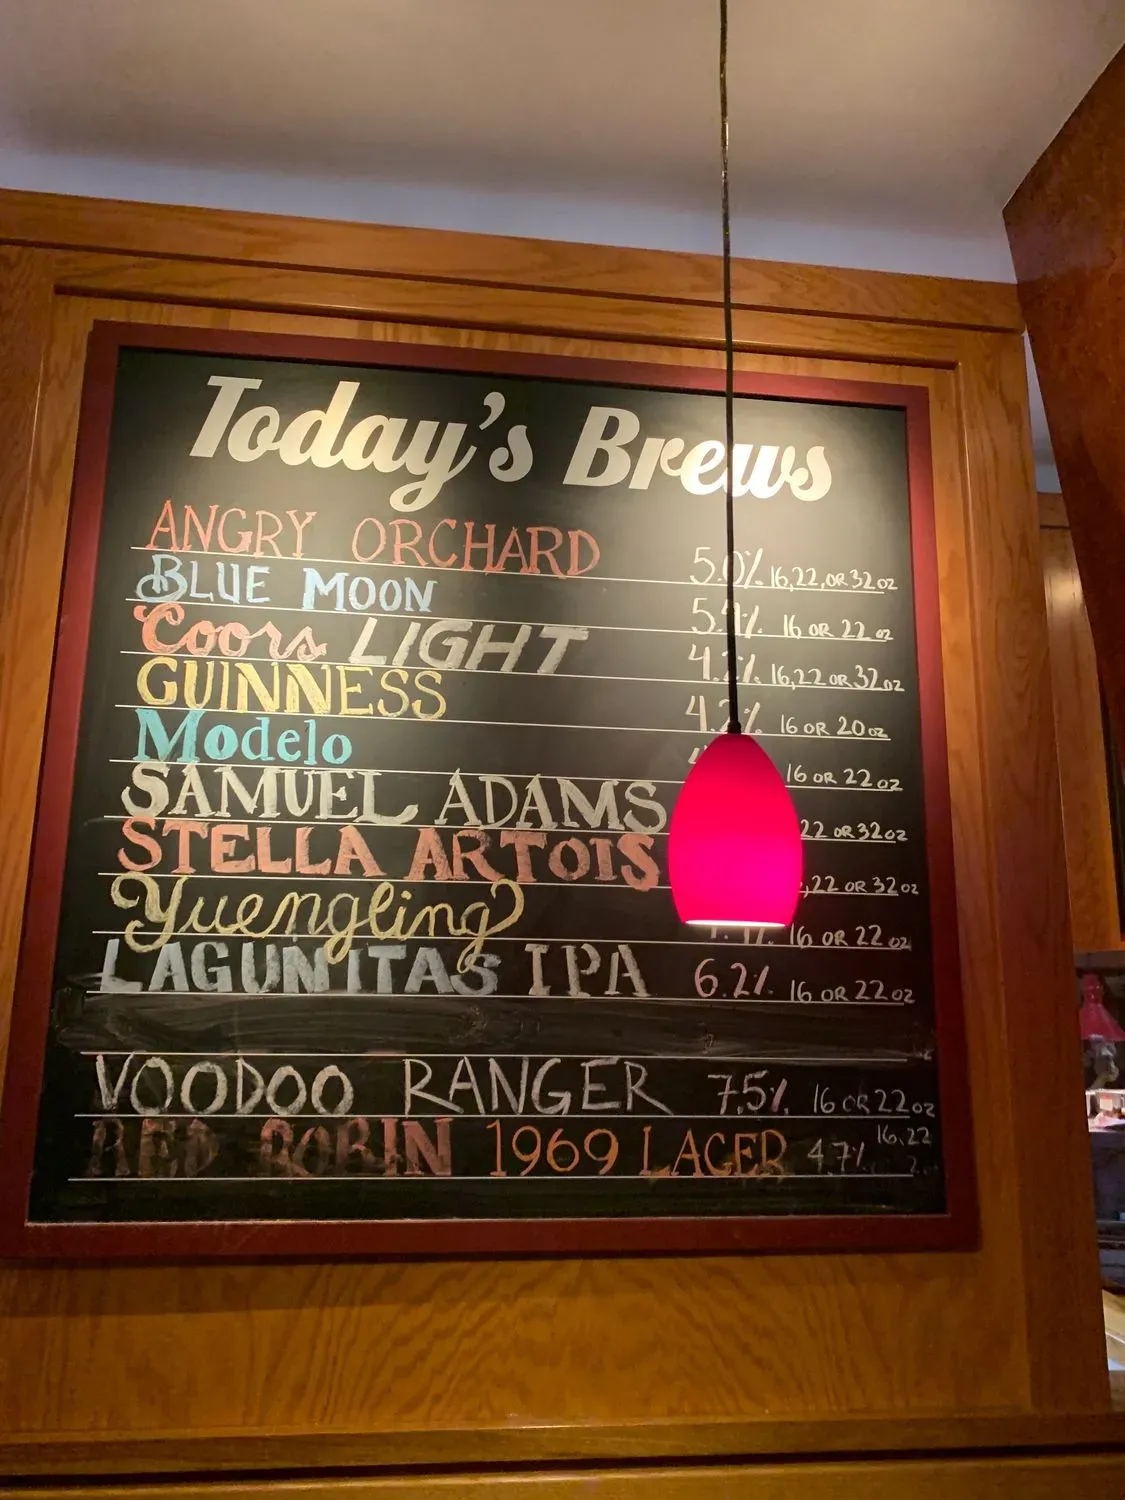 Today's Brews
ANGRY ORCHARD 5.0% 16,22, OR 32 oz
BLUE MOON 16 OR 22 oz
Coors LIGHT 4.2% 16,22 OR 32 oz
GUINNESS 4.2% 16 OR 20 oz
Modelo 16 OR 22 oz
SAMUEL ADAMS 22 OR 32 oz
STELLA ARTOIS ,22 OR 32 oz
Yuengling 16 OR 22 oz
LAGUNITAS IPA 6.2% 16 OR 22 oz
VOODOO RANGER 7.5% 16 OR 22 oz
RED ROBIN 1969 LAGER 4.7% 16,22